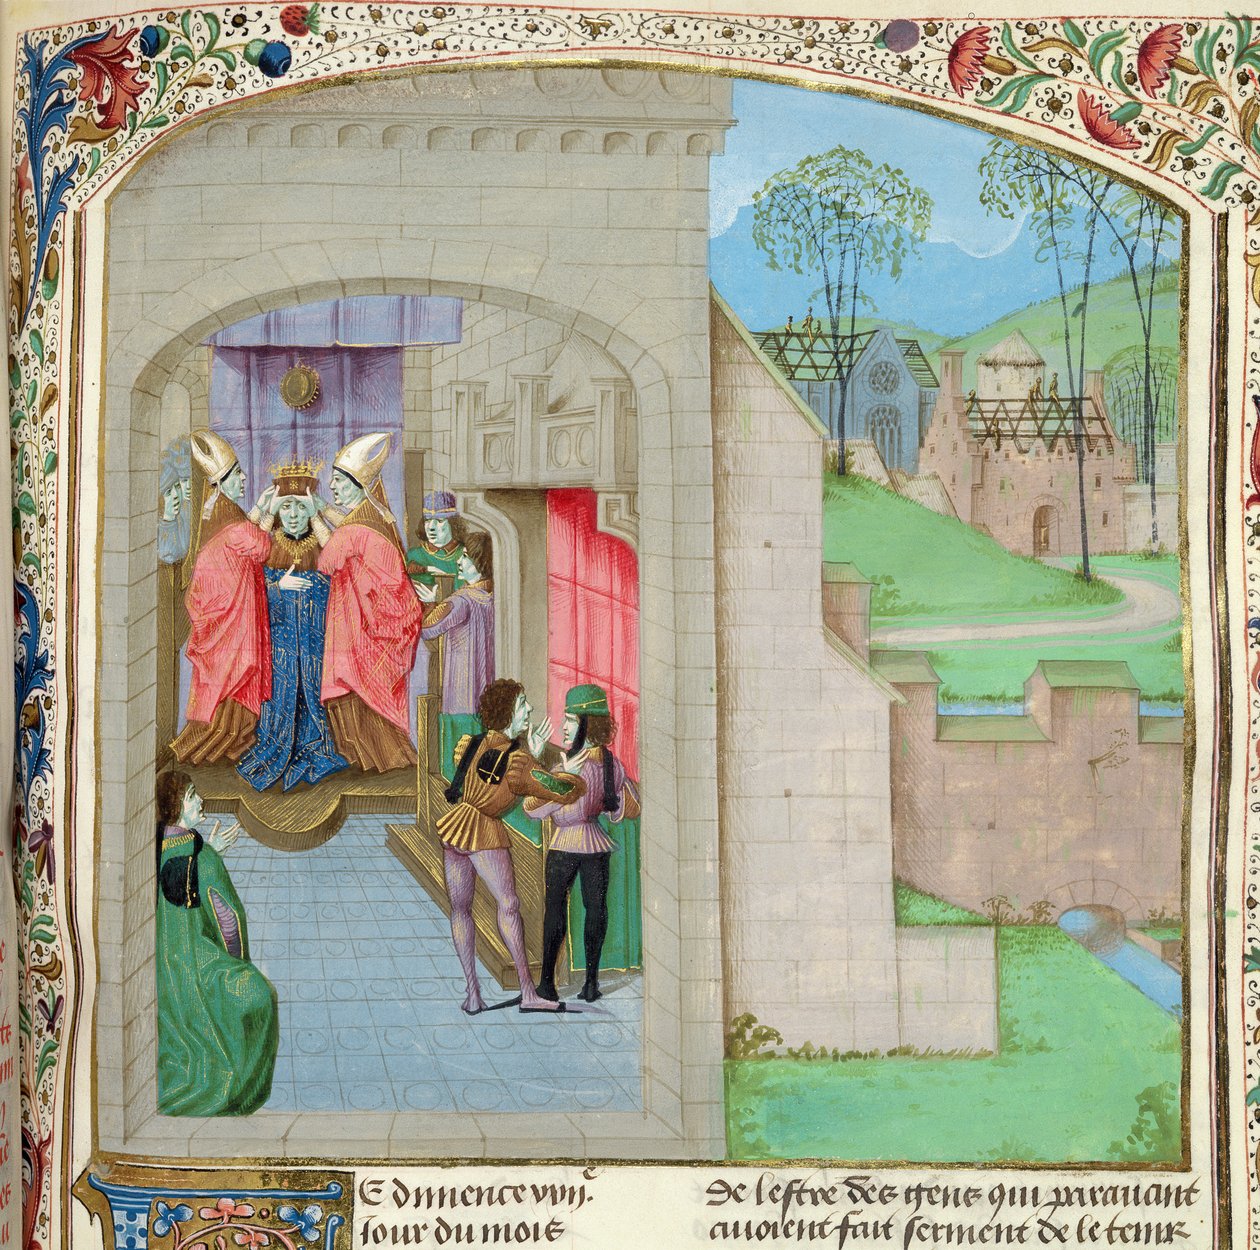 E dimence xviij.e
Jour du mois
De lestre des gens qui parauant
auoient fait serment de le tenir